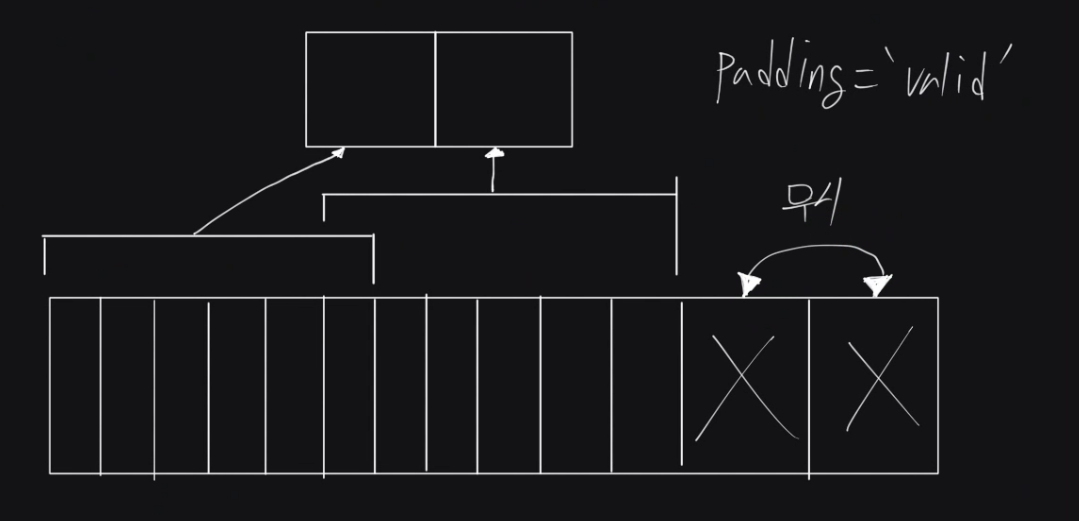 padding='valid'
무시